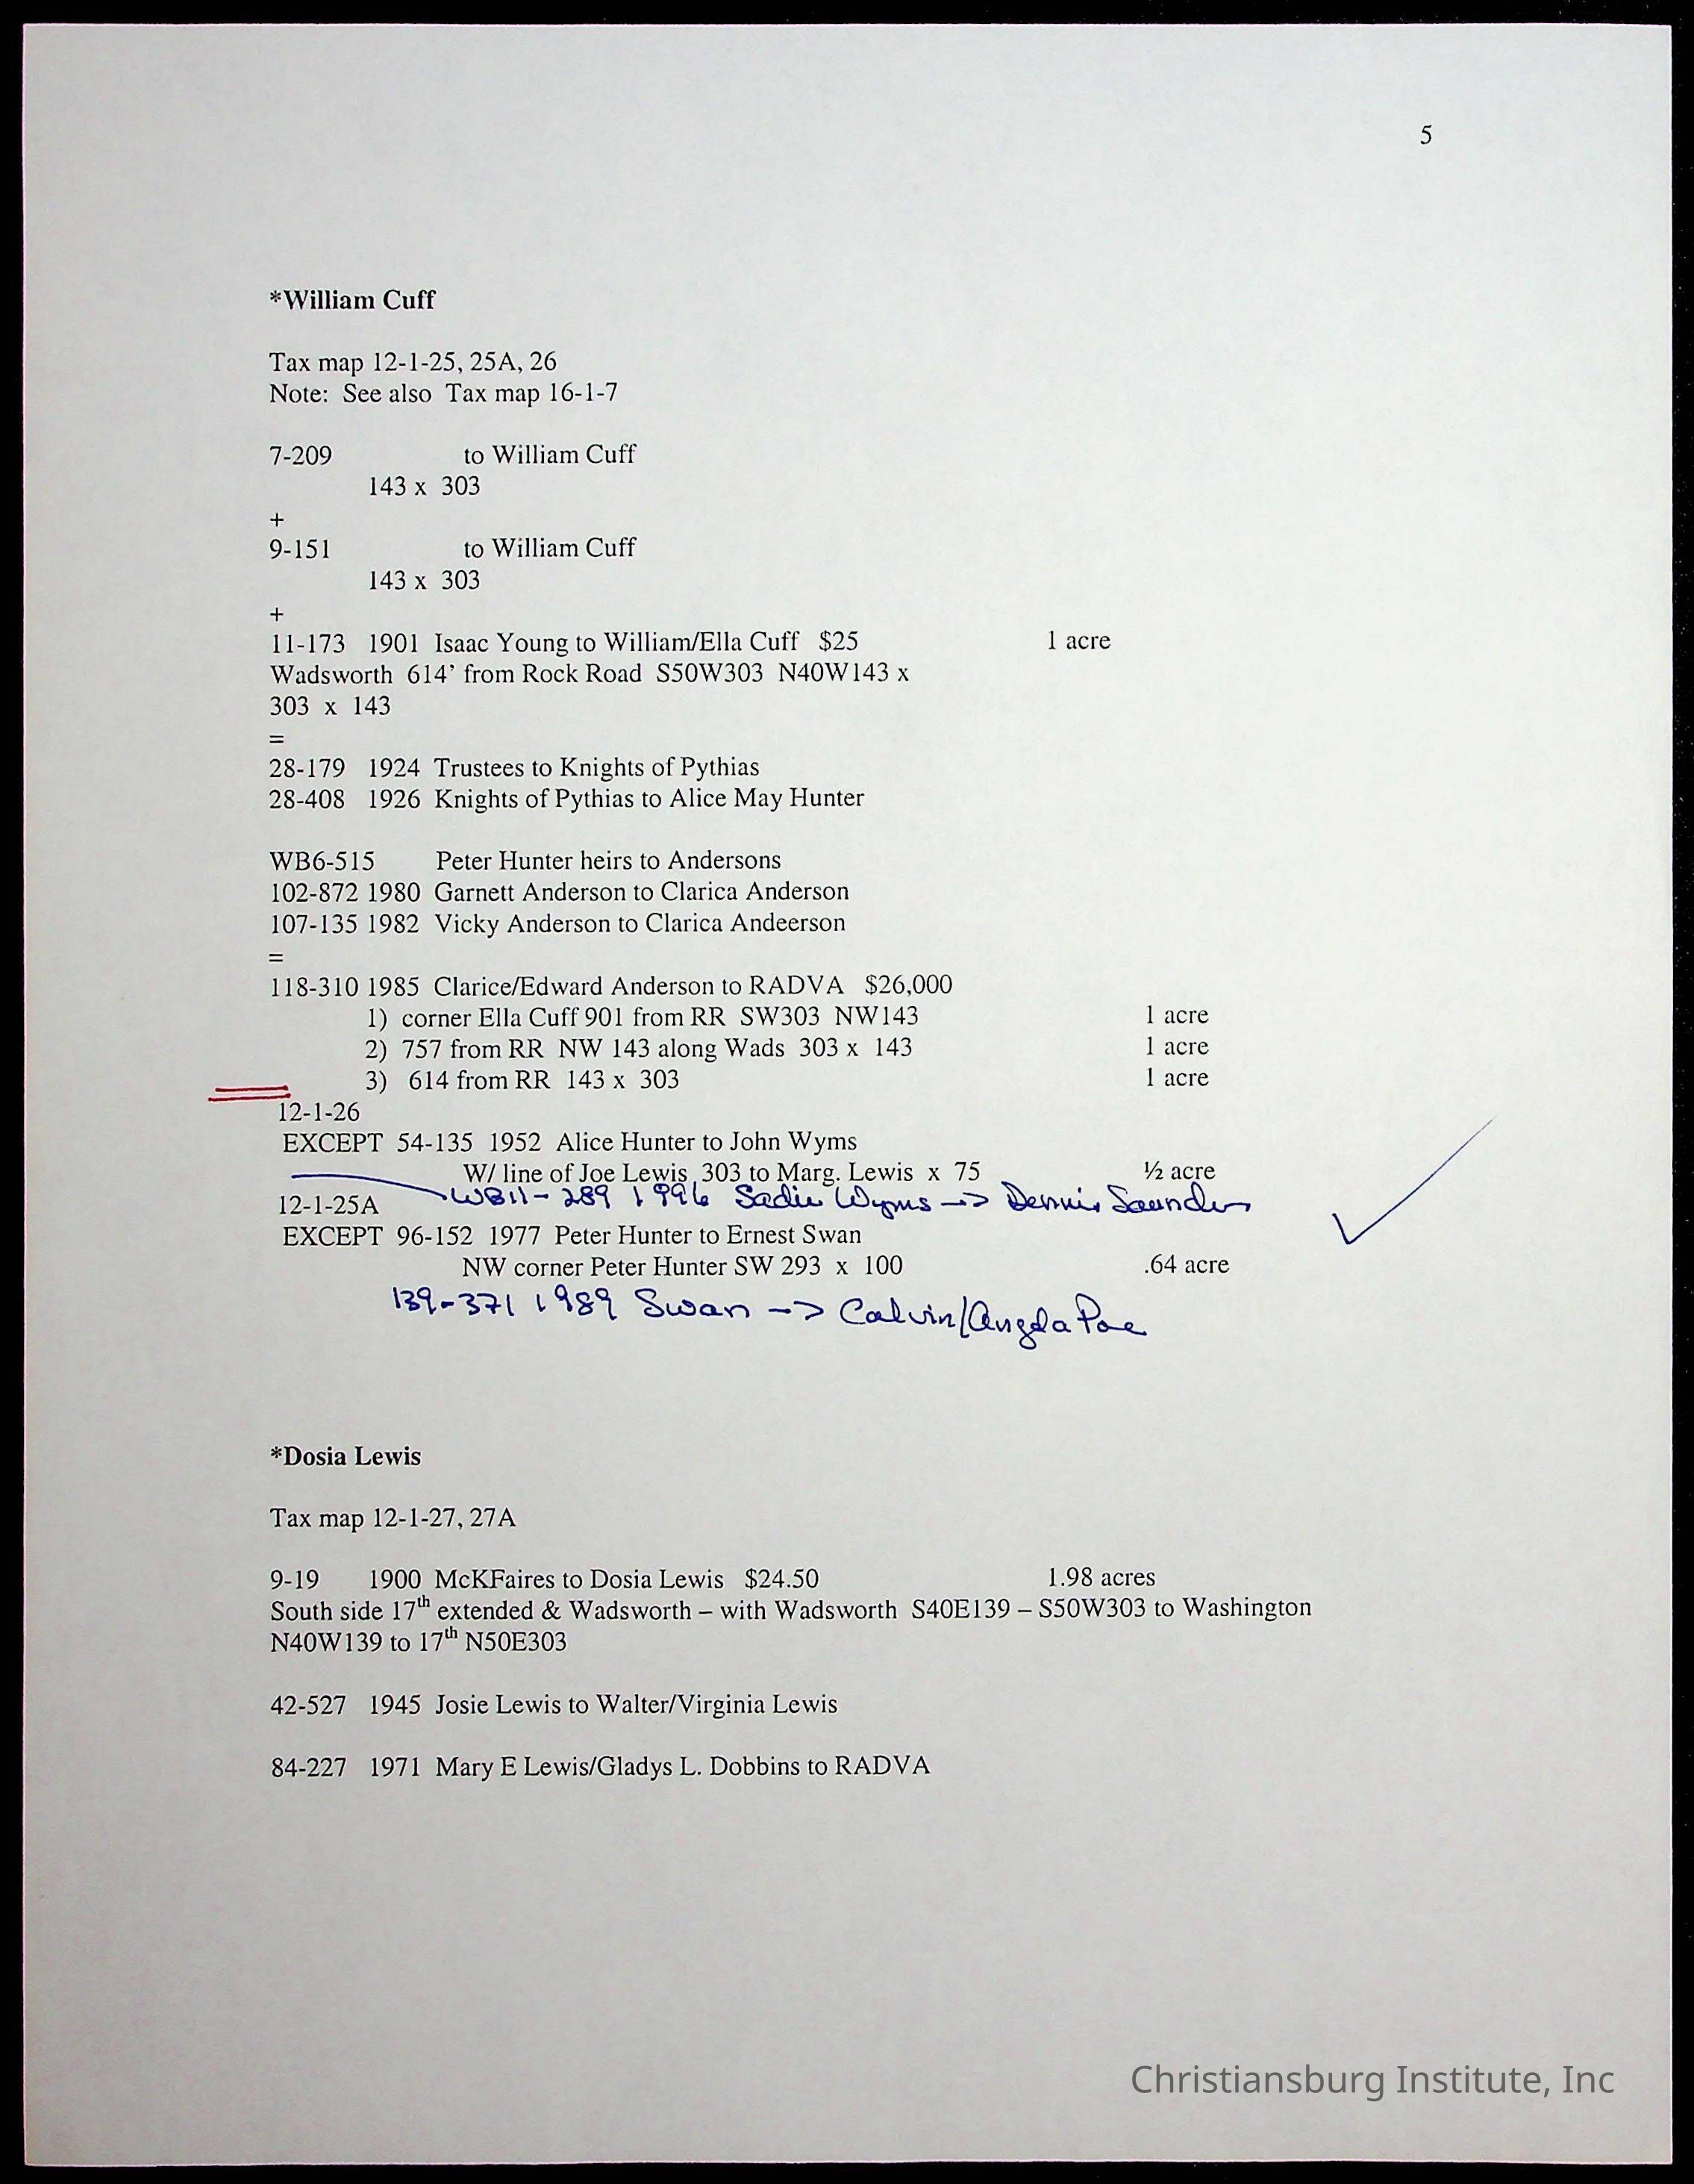 5
*William Cuff
Tax map 12-1-25, 25A, 26
Note: See also Tax map 16-1-7
7-209 to William Cuff
143 x 303
+
9-151 to William Cuff
143 x 303
+
11-173 1901 Isaac Young to William/Ella Cuff $25 1 acre
Wadsworth 614’ from Rock Road S50W303 N40W143 x
303 x 143
=
28-179 1924 Trustees to Knights of Pythias
28-408 1926 Knights of Pythias to Alice May Hunter
WB6-515 Peter Hunter heirs to Andersons
102-872 1980 Garnett Anderson to Clarica Anderson
107-135 1982 Vicky Anderson to Clarica Andeerson
=
118-310 1985 Clarice/Edward Anderson to RADVA $26,000
1) corner Ella Cuff 901 from RR SW303 NW143 1 acre
2) 757 from RR NW 143 along Wads 303 x 143 1 acre
3) 614 from RR 143 x 303 1 acre
12-1-26
EXCEPT 54-135 1952 Alice Hunter to John Wyms
W/ line of Joe Lewis 303 to Marg. Lewis x 75 ½ acre
WB11-289 1996 Sadie Wyms -> Dennis Saunders
12-1-25A
EXCEPT 96-152 1977 Peter Hunter to Ernest Swan
NW corner Peter Hunter SW 293 x 100 .64 acre
139-371 1989 Swan -> Calvin/Angela Poe
*Dosia Lewis
Tax map 12-1-27, 27A
9-19 1900 McKFaires to Dosia Lewis $24.50 1.98 acres
South side 17th extended & Wadsworth – with Wadsworth S40E139 – S50W303 to Washington
N40W139 to 17th N50E303
42-527 1945 Josie Lewis to Walter/Virginia Lewis
84-227 1971 Mary E Lewis/Gladys L. Dobbins to RADVA
Christiansburg Institute, Inc